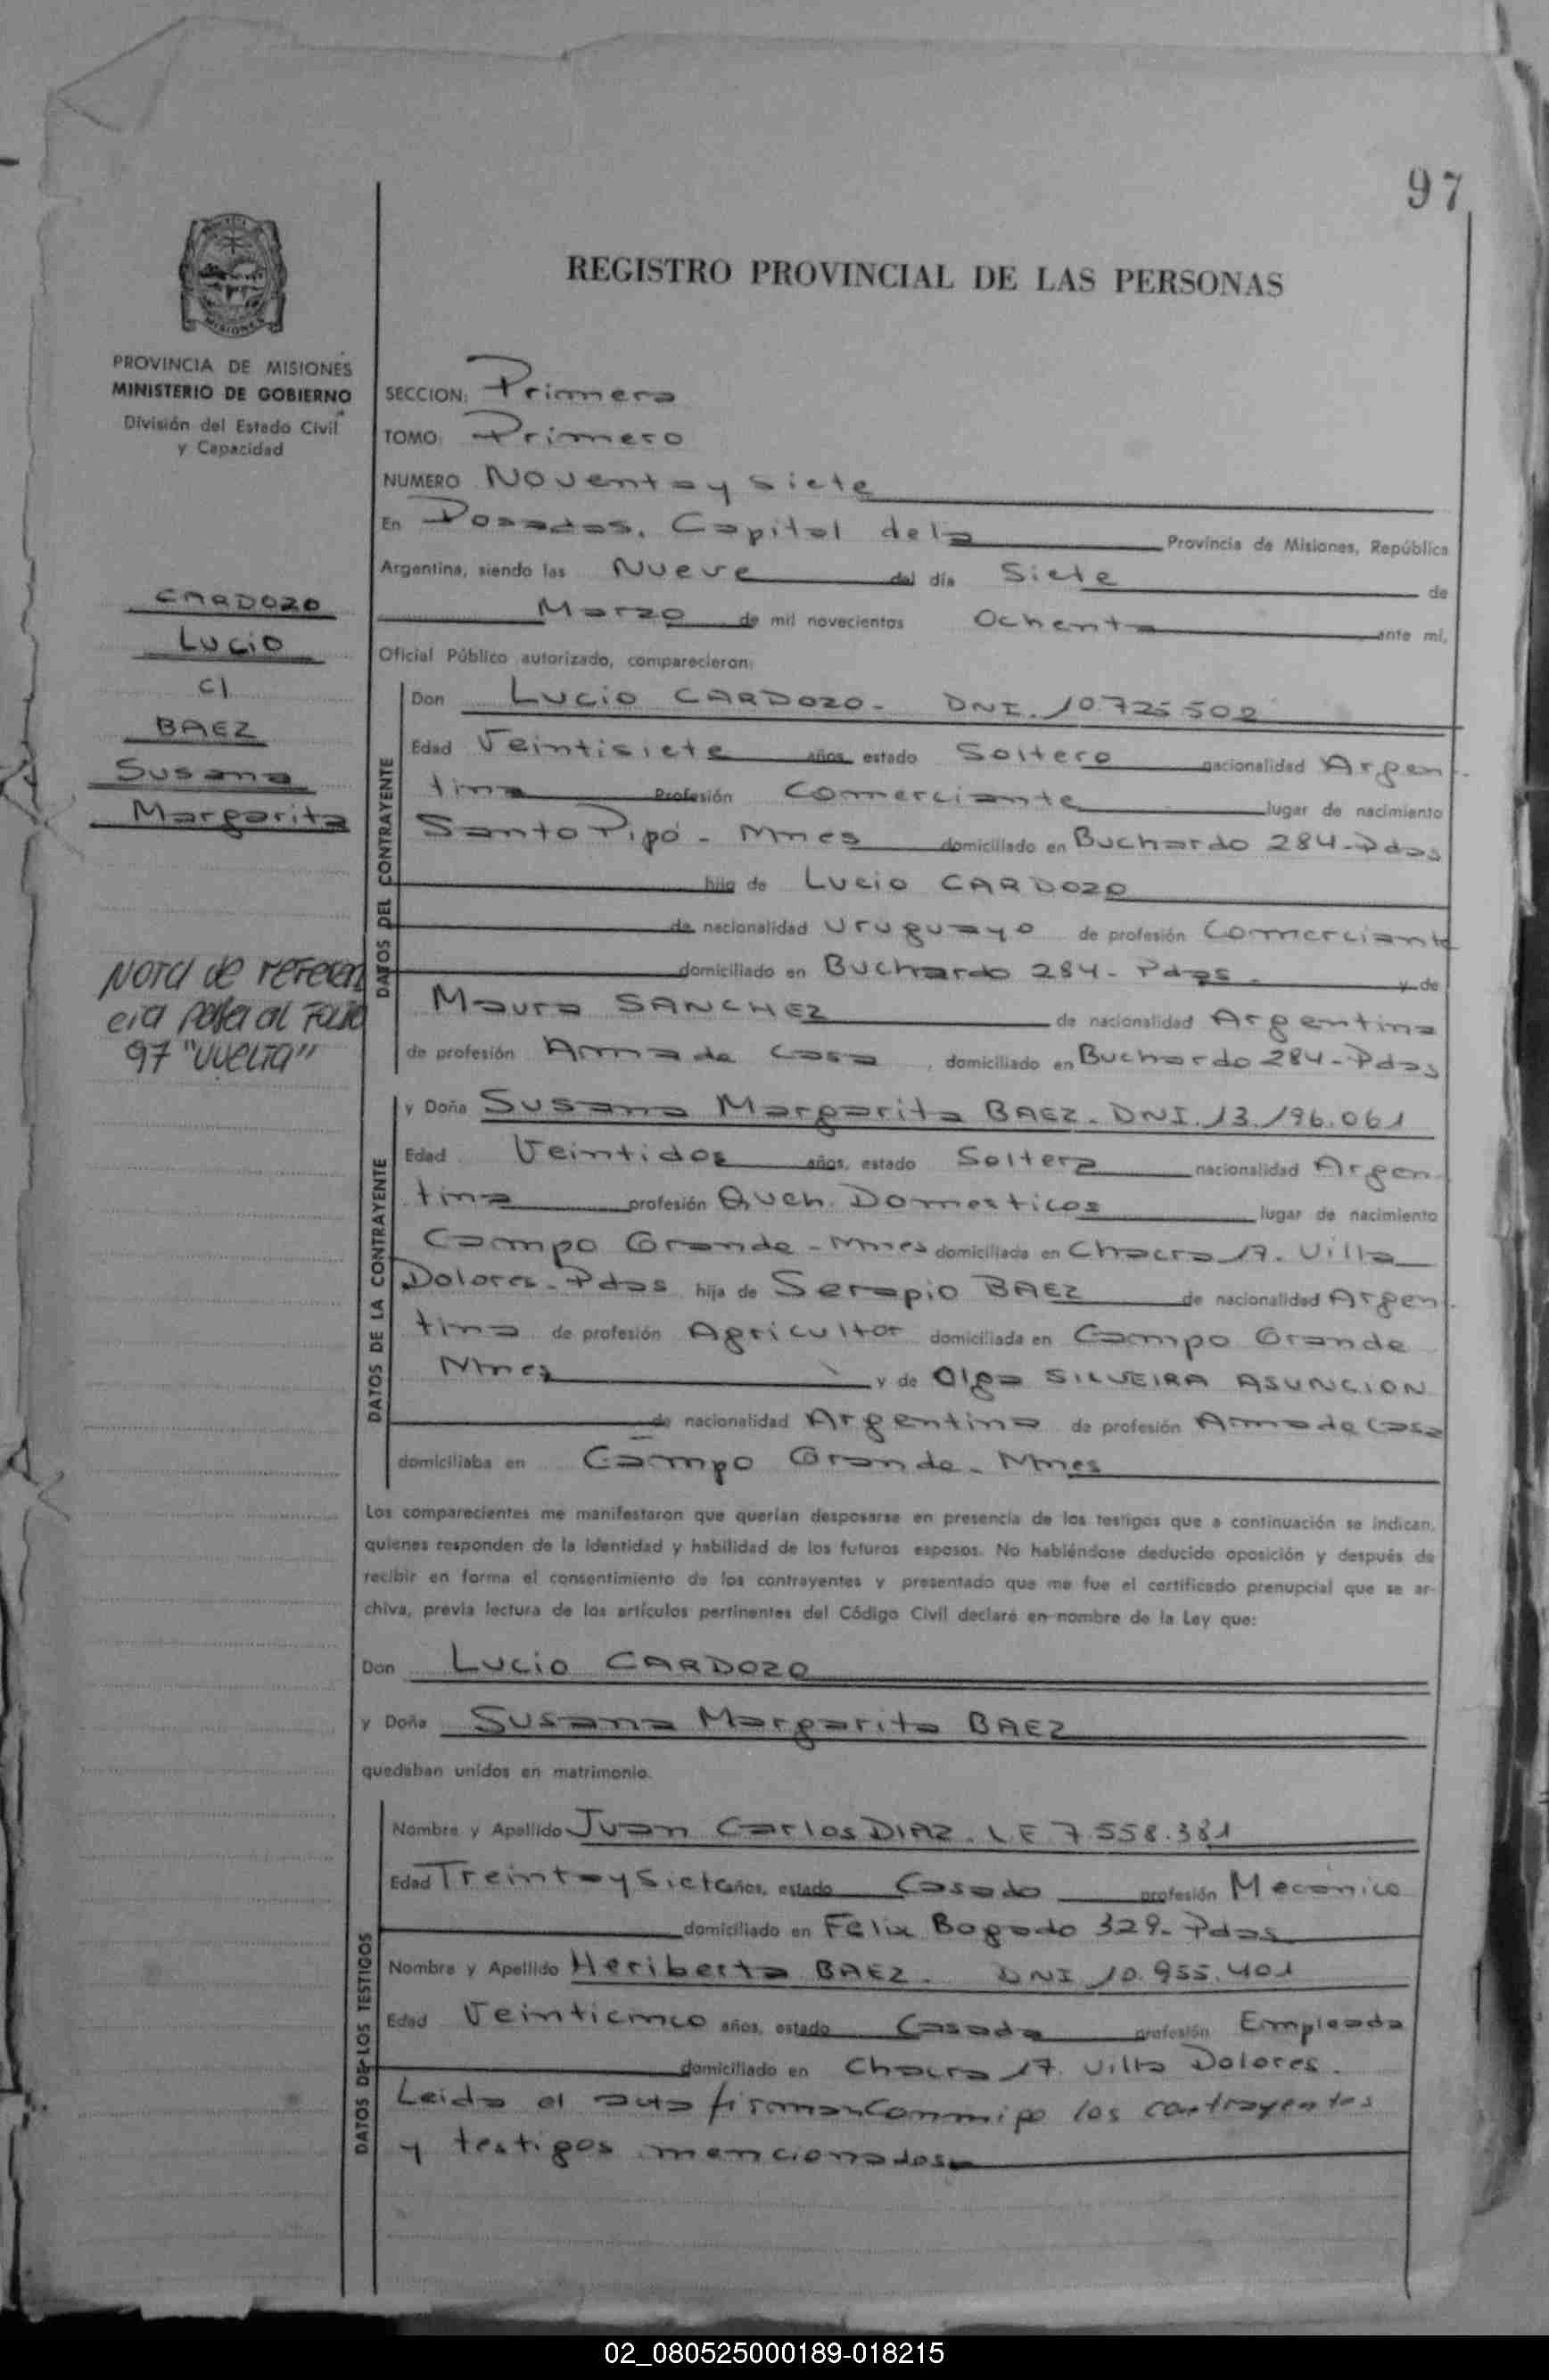 97
REGISTRO PROVINCIAL DE LAS PERSONAS
MISIONES
PROVINCIA DE MISIONES
MINISTERIO DE GOBIERNO
División del Estado Civil
y Capacidad
CARDOZO
LUCIO
C/
BAEZ
Susana
Margarita
Nota de referen
cia pasa al Folio
97 "VUELTA"
SECCION: Primera
TOMO: Primero
NUMERO Noventa y siete
En Posadas, Capital de la Provincia de Misiones, República
Argentina, siendo las Nueve del día Siete de
Marzo de mil novecientos Ochenta ante mi,
Oficial Público autorizado, comparecieron:
DATOS DEL CONTRAYENTE
Don Lucio CARDOZO - DNI. 10725502
Edad Veintisiete años, estado Soltero nacionalidad Argen-
tina Profesión Comerciante lugar de nacimiento
Santo Pipó - Mnes domiciliado en Buchardo 284 - Pdas
hijo de Lucio CARDOZO
de nacionalidad Uruguayo de profesión Comerciante
domiciliado en Buchardo 284 - Pdas - y de
Maura SANCHEZ de nacionalidad Argentina
de profesión Ama de Casa, domiciliado en Buchardo 284 - Pdas
DATOS DE LA CONTRAYENTE
y Doña Susana Margarita BAEZ - DNI. 13.196.061
Edad Veintidos años, estado Soltera nacionalidad Argen
tina profesión Queh. Domesticos lugar de nacimiento
Campo Grande - Mnes domiciliada en Chacra 17. Villa
Dolores - Pdas hija de Serapio BAEZ de nacionalidad Argen-
tina de profesión Agricultor domiciliada en Campo Grande
Mnes y de Olga SILVEIRA ASUNCION
de nacionalidad Argentina de profesión Ama de Casa
domiciliaba en Campo Grande - Mnes
Los comparecientes me manifestaron que querían desposarse en presencia de los testigos que a continuación se indican,
quienes responden de la identidad y habilidad de los futuros esposos. No habiéndose deducido oposición y después de
recibir en forma el consentimiento de los contrayentes y presentado que me fue el certificado prenupcial que se ar-
chiva, previa lectura de los artículos pertinentes del Código Civil declaré en nombre de la Ley que:
Don Lucio CARDOZO
y Doña Susana Margarita BAEZ
quedaban unidos en matrimonio.
DATOS DE LOS TESTIGOS
Nombre y Apellido Juan Carlos DIAZ. LE 7.558.381
Edad Treinta y Siete años, estado Casado profesión Mecánico
domiciliado en Felix Bogado 329 - Pdas
Nombre y Apellido Heriberta BAEZ. DNI 10.955.401
Edad Veinticinco años, estado Casada profesión Empleada
domiciliado en Chacra 17. Villa Dolores.
Leida el acta firman Conmigo los contrayentes
y testigos mencionados
02_080525000189-018215